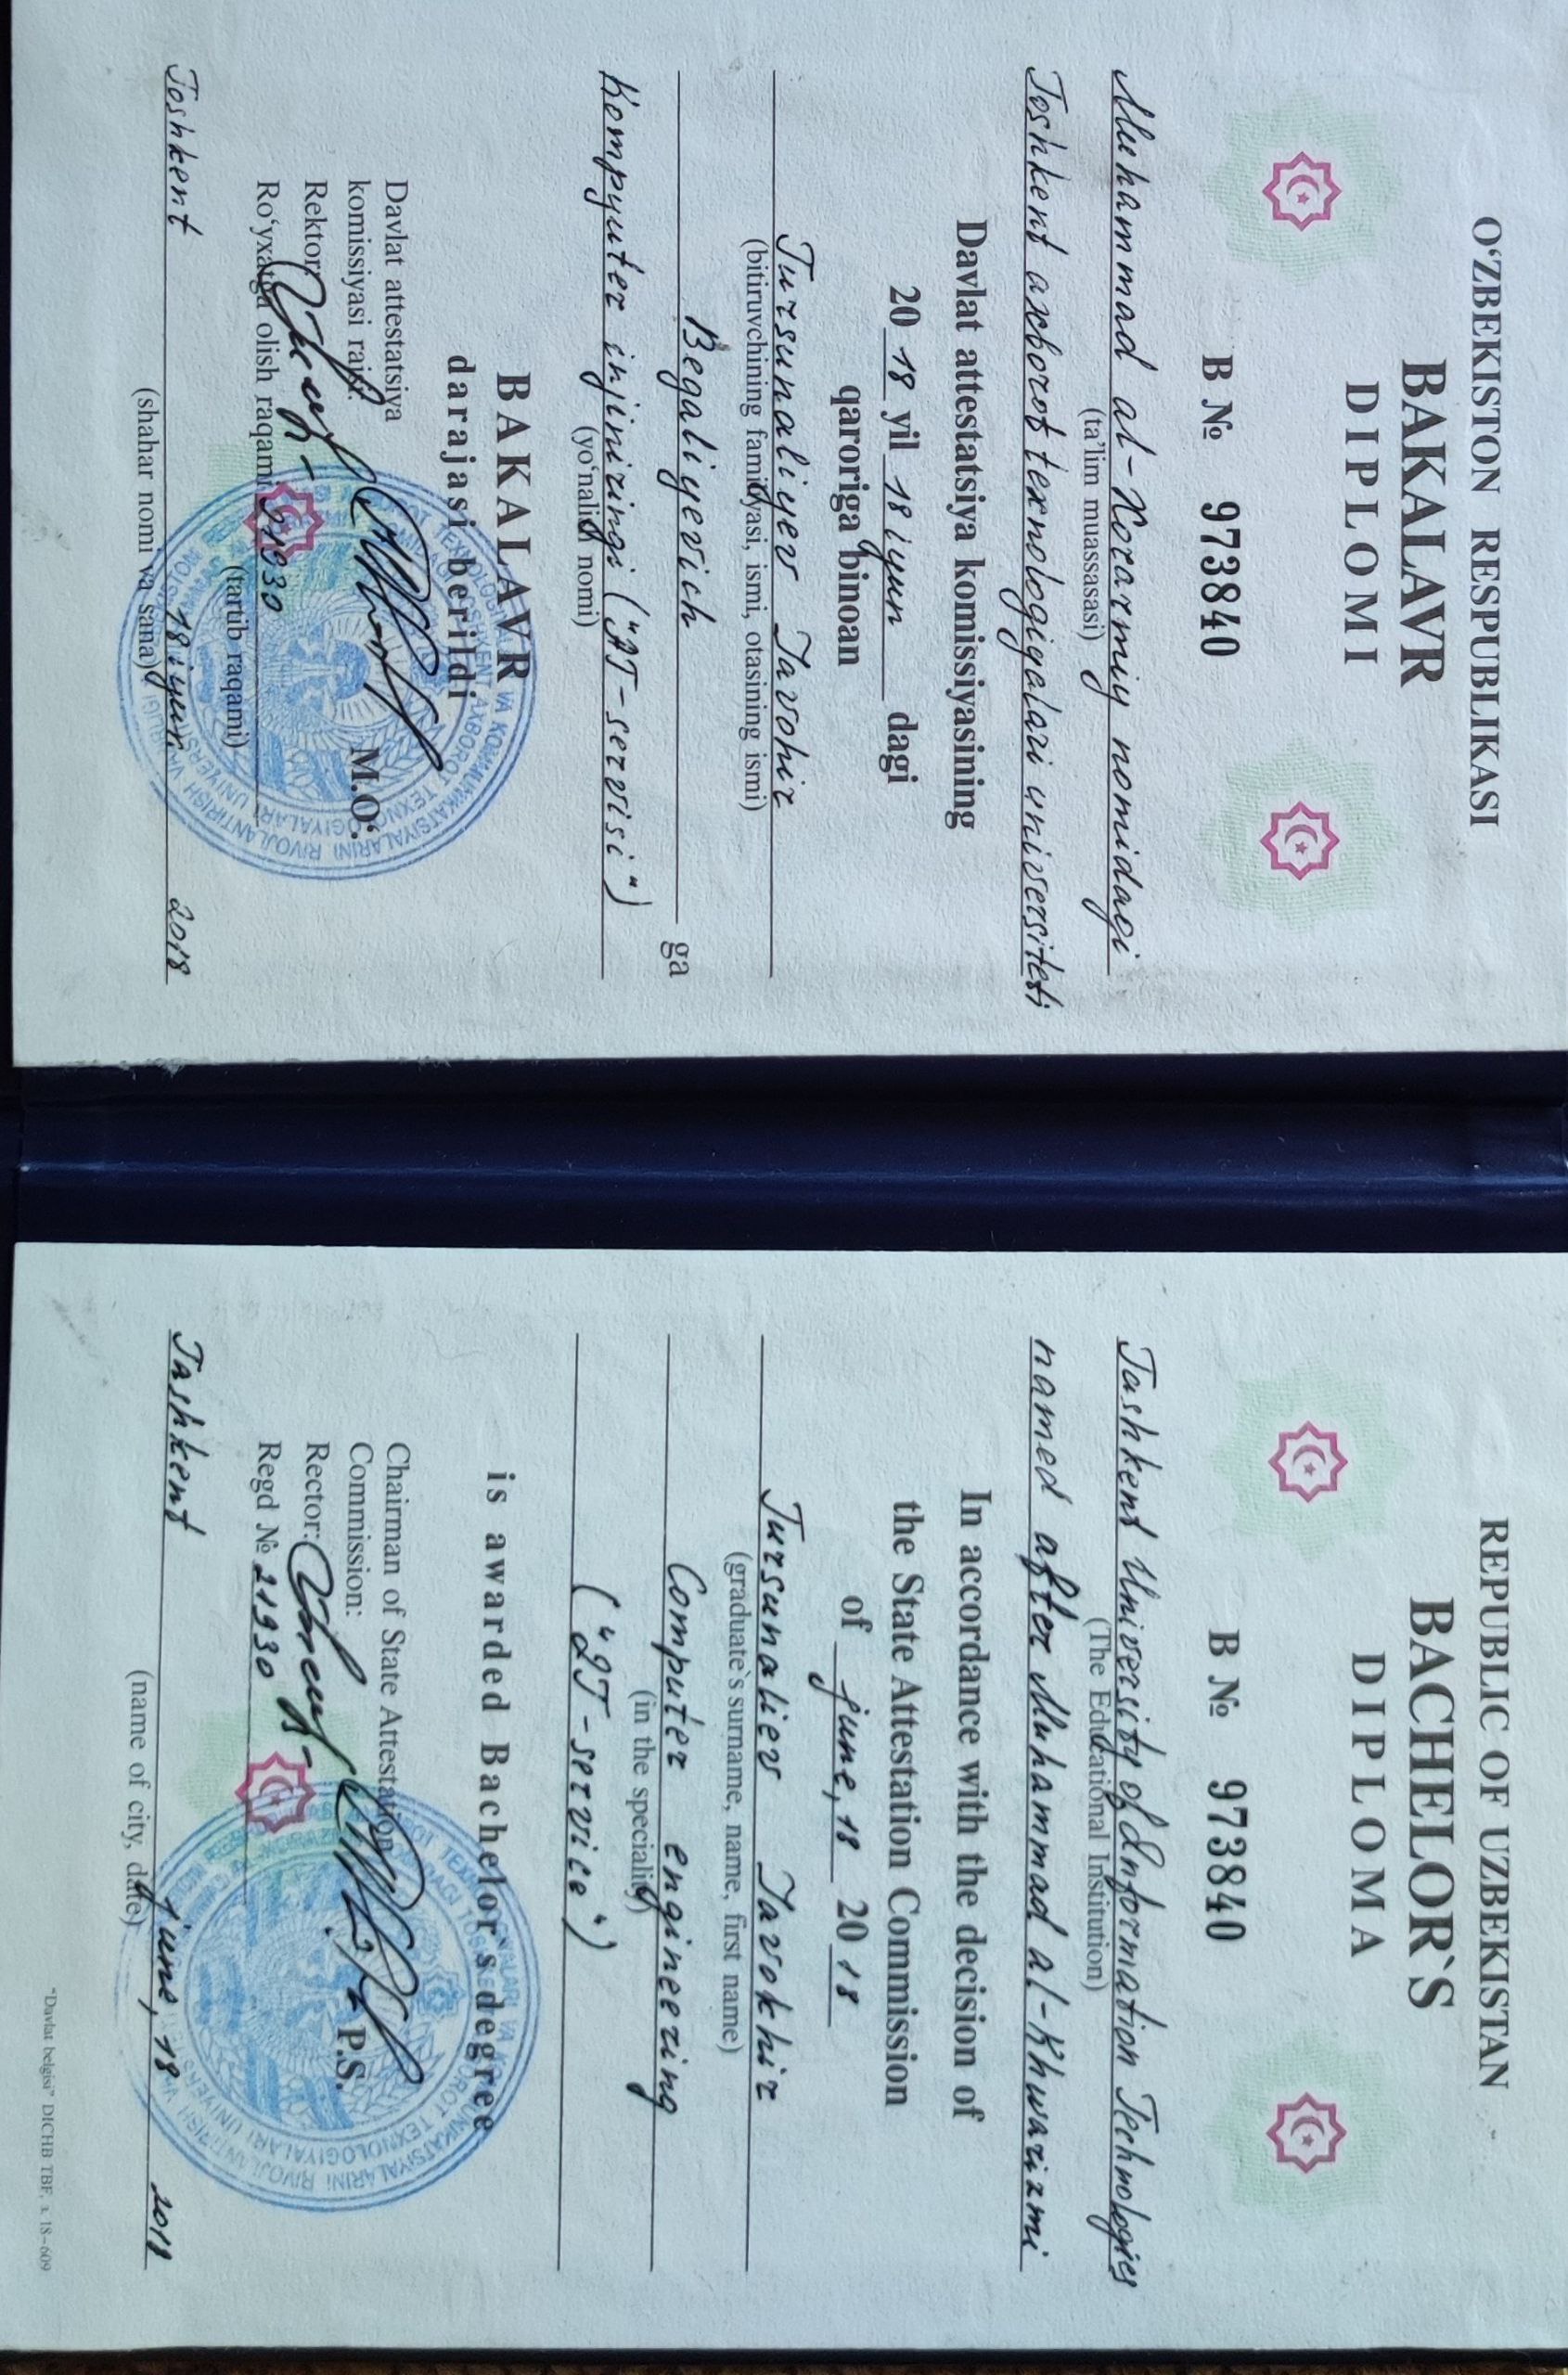 O‘ZBEKISTON RESPUBLIKASI
BAKALAVR
DIPLOMI
B № 973840
Muhammad al-Xorazmiy nomidagi
(ta’lim muassasasi)
Toshkent axborot texnologiyalari universiteti
Davlat attestatsiya komissiyasining
20 18 yil 18 iyun dagi
qaroriga binoan
Tursunaliyev Javohir
(bitiruvchining familiyasi, ismi, otasining ismi)
Begaliyevich ga
Kompyuter injiniringi ("AT-servisi")
(yo‘nalish nomi)
BAKALAVR
darajasi berildi
Davlat attestatsiya
komissiyasi raisi:
Rektor:
M.O‘.
Ro‘yxatga olish raqami 21930
(tartib raqami)
Toshkent 18 iyun 2018
(shahar nomi va sana)
REPUBLIC OF UZBEKISTAN
BACHELOR`S
DIPLOMA
B № 973840
Tashkent University of Information Technologies
(The Educational Institution)
named after Muhammad al-Khwarizmi
In accordance with the decision of
the State Attestation Commission
of june, 18 20 18
Tursunaliev Javokhir
(graduate`s surname, name, first name)
Computer engineering
(in the speciality)
("IT-service")
is awarded Bachelor`s degree
Chairman of State Attestation
Commission:
Rector:
P.S.
Regd № 21930
Tashkent june, 18 2018
(name of city, date)
"Davlat belgisi" DICHB TBF, z. 18–609